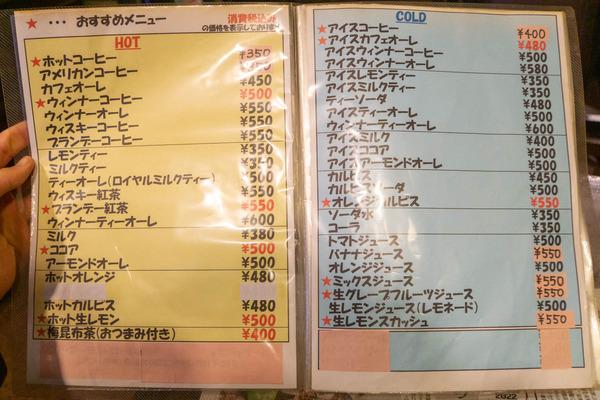 ★ … おすすめメニュー
消費税込み
の価格を表示しております
HOT
★ホットコーヒー ¥350
アメリカンコーヒー
カフェオーレ ¥450
★ウィンナーコーヒー ¥500
ウィンナーオーレ ¥550
ウィスキーコーヒー ¥550
ブランデーコーヒー ¥550
レモンティー ¥350
ミルクティー ¥350
ティーオーレ(ロイヤルミルクティー) ¥500
ウィスキー紅茶 ¥550
★ブランデー紅茶 ¥550
ウィンナーティーオーレ ¥600
ミルク ¥380
★ココア ¥500
アーモンドオーレ ¥500
ホットオレンジ ¥480
ホットカルピス ¥480
★ホット生レモン ¥500
★梅昆布茶(おつまみ付き) ¥400
COLD
★アイスコーヒー ¥400
★アイスカフェオーレ ¥480
アイスウィンナーコーヒー ¥500
アイスウィンナーオーレ ¥580
アイスレモンティー ¥350
アイスミルクティー ¥350
ティーソーダ ¥480
アイスティーオーレ ¥500
ウィンナーティーオーレ ¥600
アイスミルク ¥400
アイスココア ¥500
アイスアーモンドオーレ ¥500
カルピス ¥450
カルピスソーダ ¥500
★オレンジカルピス ¥550
ソーダ水 ¥350
コーラ ¥350
トマトジュース ¥500
バナナジュース ¥550
オレンジジュース ¥500
★ミックスジュース ¥550
★生グレープフルーツジュース ¥550
生レモンジュース(レモネード) ¥500
★生レモンスカッシュ ¥550
2022